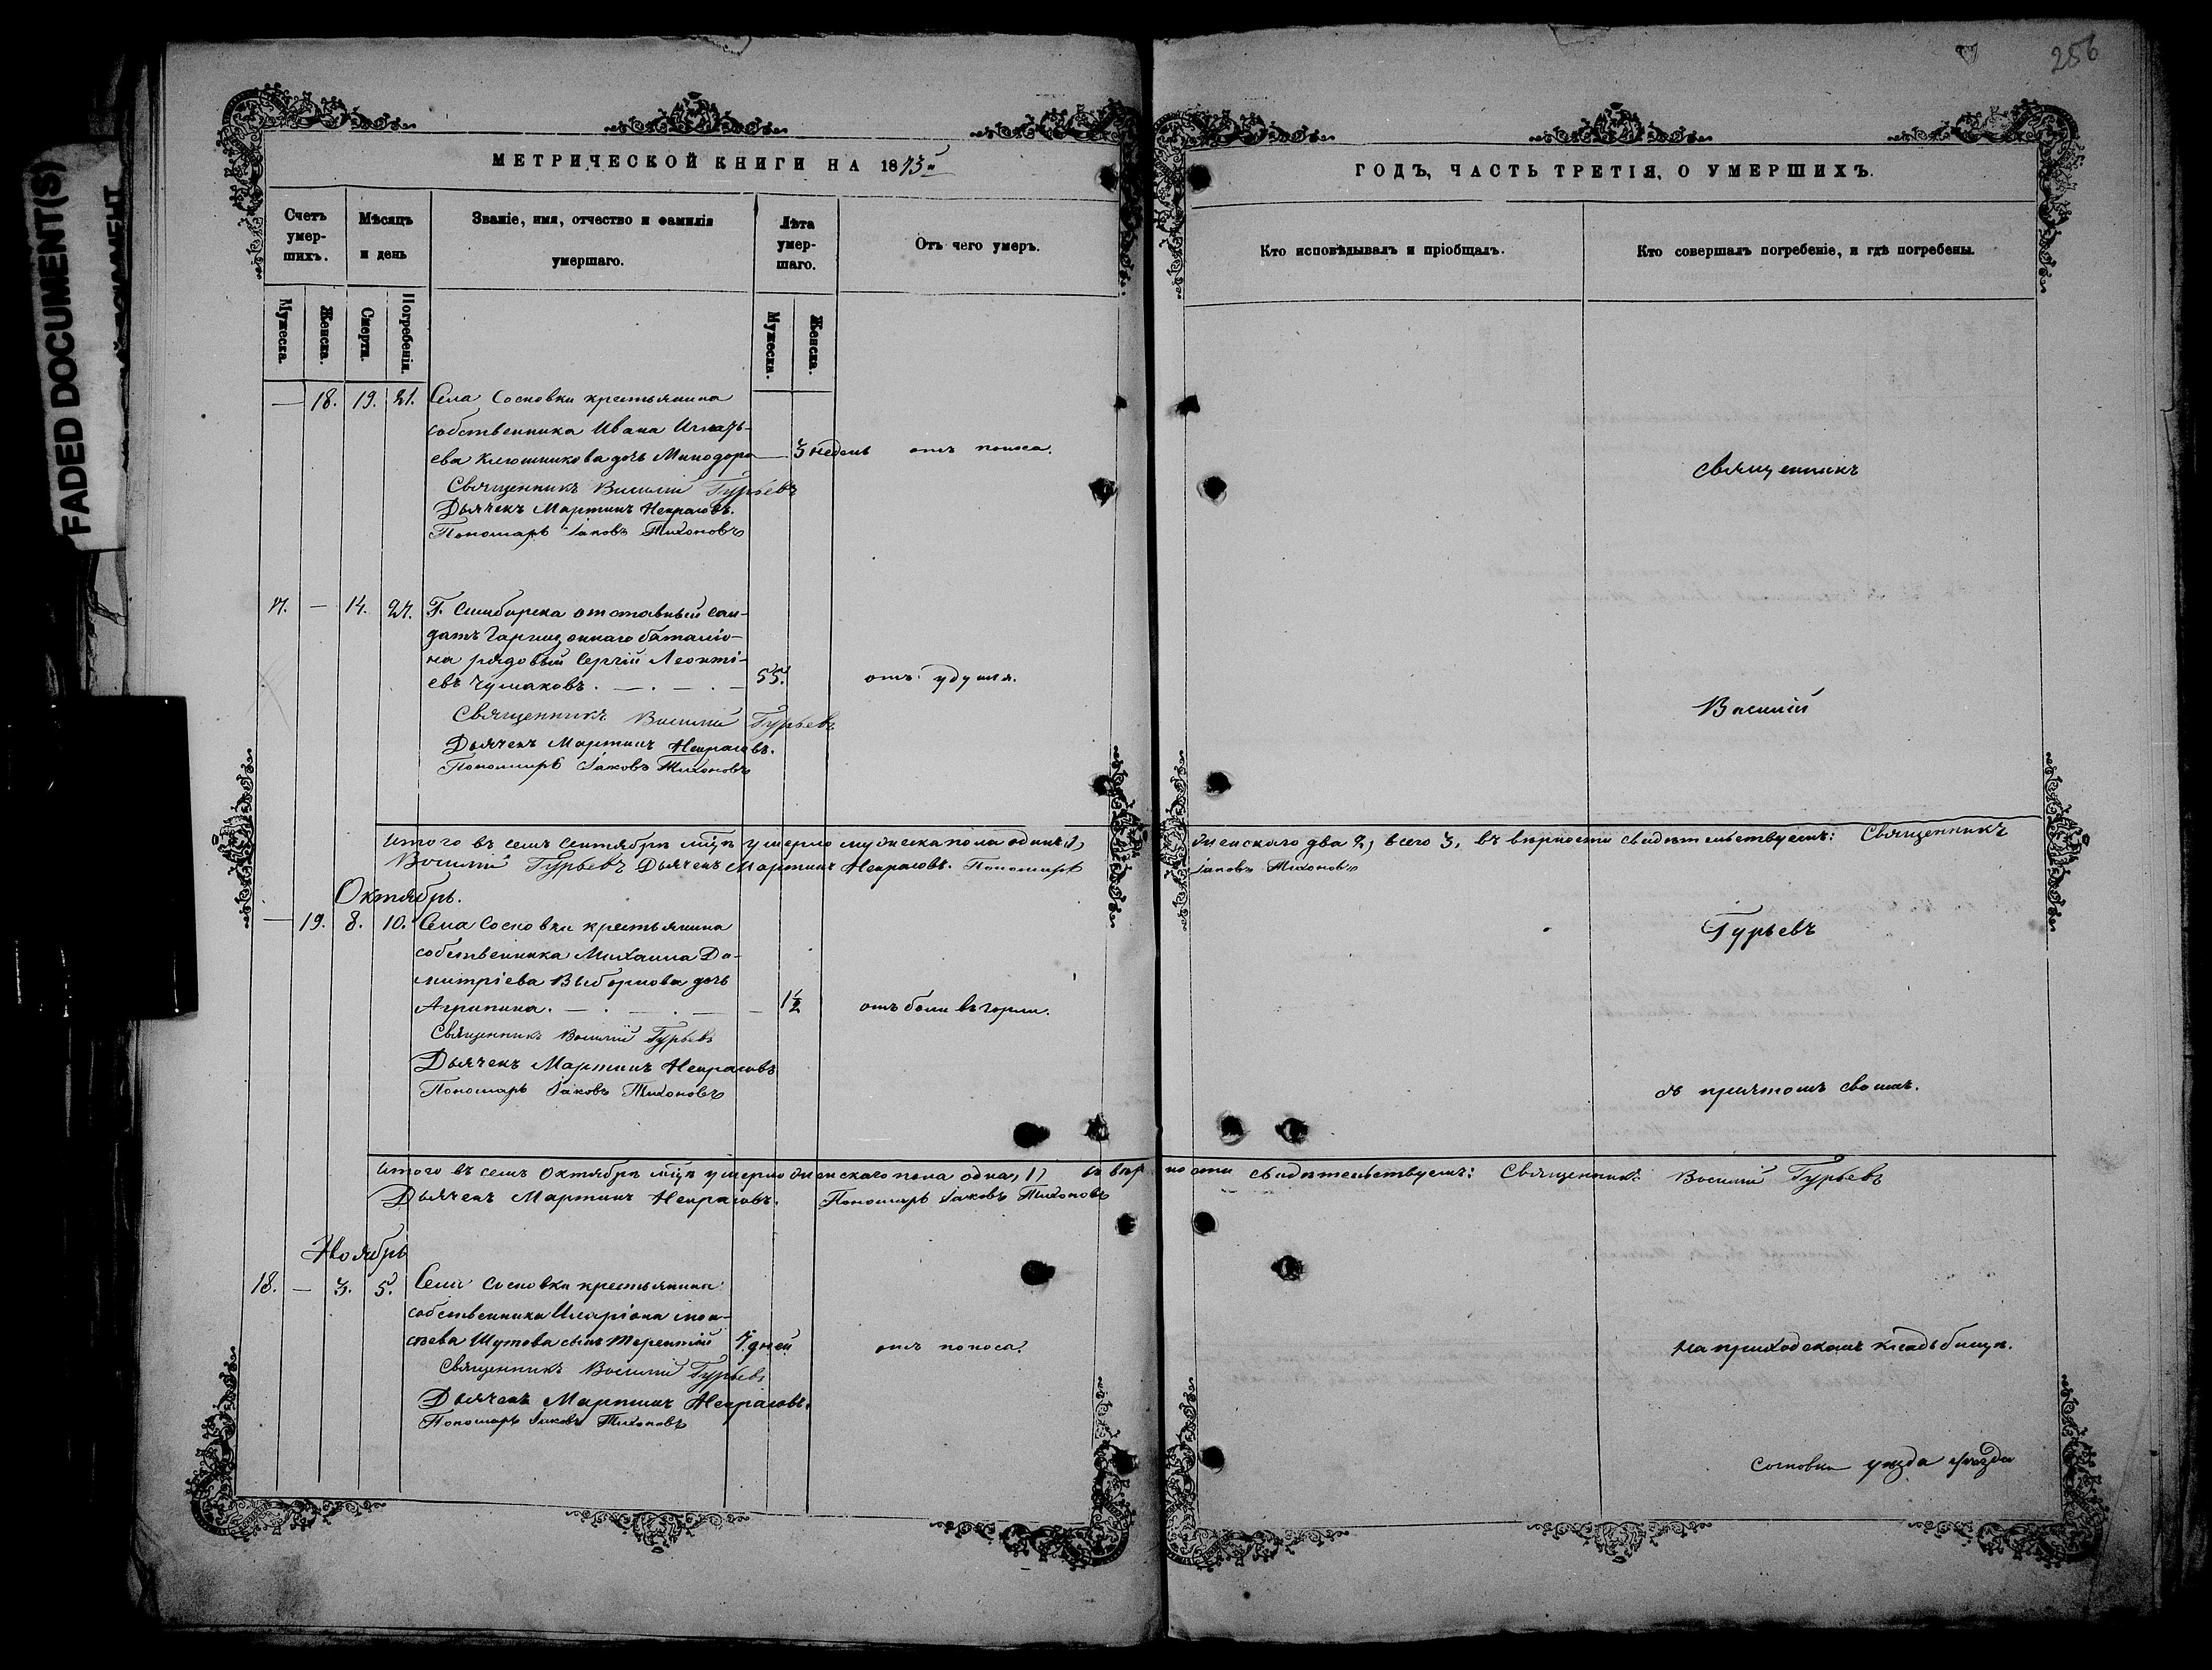 FADED DOCUMENT(S)
256
МЕТРИЧЕСКОЙ КНИГИ НА 1873й
ГОДЪ, ЧАСТЬ ТРЕТІЯ, О УМЕРШИХЪ.
Счетъ умер-шихъ.
Мѣсяцъ и день
Званіе, имя, отчество и фамилія умершаго.
Лѣта умер-шаго.
Отъ чего умеръ.
Кто исповѣдывалъ и пріобщалъ.
Кто совершалъ погребеніе, и гдѣ погребены.
Мужеска.
Женска.
Смерти.
Погребенія.
Мужеска.
Женска.
— 18. 19. 21. Села Сосновки крестьянина
собственника Ивана Игнать-
ева Клюшникова дочь Минодора — 3 недель отъ поноса.
Священникъ
Священникъ Василій Гурьевъ
Дьячекъ Мартинъ Некрасовъ.
Пономарь Іаковъ Тихоновъ
17. — 14. 27. Г. Симбирска отставный сол-
датъ Гарнизоннаго баталіо-
на рядовый Сергій Леонті-
евъ Чумаковъ. — . — . — 55. отъ удушья.
Василій
Священникъ Василій Гурьевъ
Дьячекъ Мартинъ Некрасовъ.
Пономарь Іаковъ Тихоновъ
Итого въ семъ Сентябрѣ мцѣ умерло мужеска пола одинъ 1, женскаго два 2, всего 3, въ вѣрности свидѣтельствуемъ: Священникъ
Василій Гурьевъ Дьячекъ Мартинъ Некрасовъ. Пономарь Іаковъ Тихоновъ
Октябрь.
— 19. 8. 10. Села Сосновки крестьянина
Гурьевъ
собственника Михаила Ди-
митріева Выборнова дочь
Агрипина. — . — . — — 1½ отъ боли въ горлѣ.
Священникъ Василій Гурьевъ
Дьячекъ Мартинъ Некрасовъ
Пономарь Іаковъ Тихоновъ
съ причтомъ своимъ.
Итого въ семъ Октябрѣ мцѣ умерло женскаго пола одна, 1, въ вѣрности свидѣтельствуемъ: Священникъ Василій Гурьевъ
Дьячекъ Мартинъ Некрасовъ. Пономарь Іаковъ Тихоновъ
Ноябрь
18. — 3. 5. Села Сосновки крестьянина
собственника Иларіона
Шутова сынъ Терентій 7. дней отъ поноса.
на приходскомъ кладбищѣ.
Священникъ Василій Гурьевъ
Дьячекъ Мартинъ Некрасовъ.
Пономарь Іаковъ Тихоновъ
Сосновки